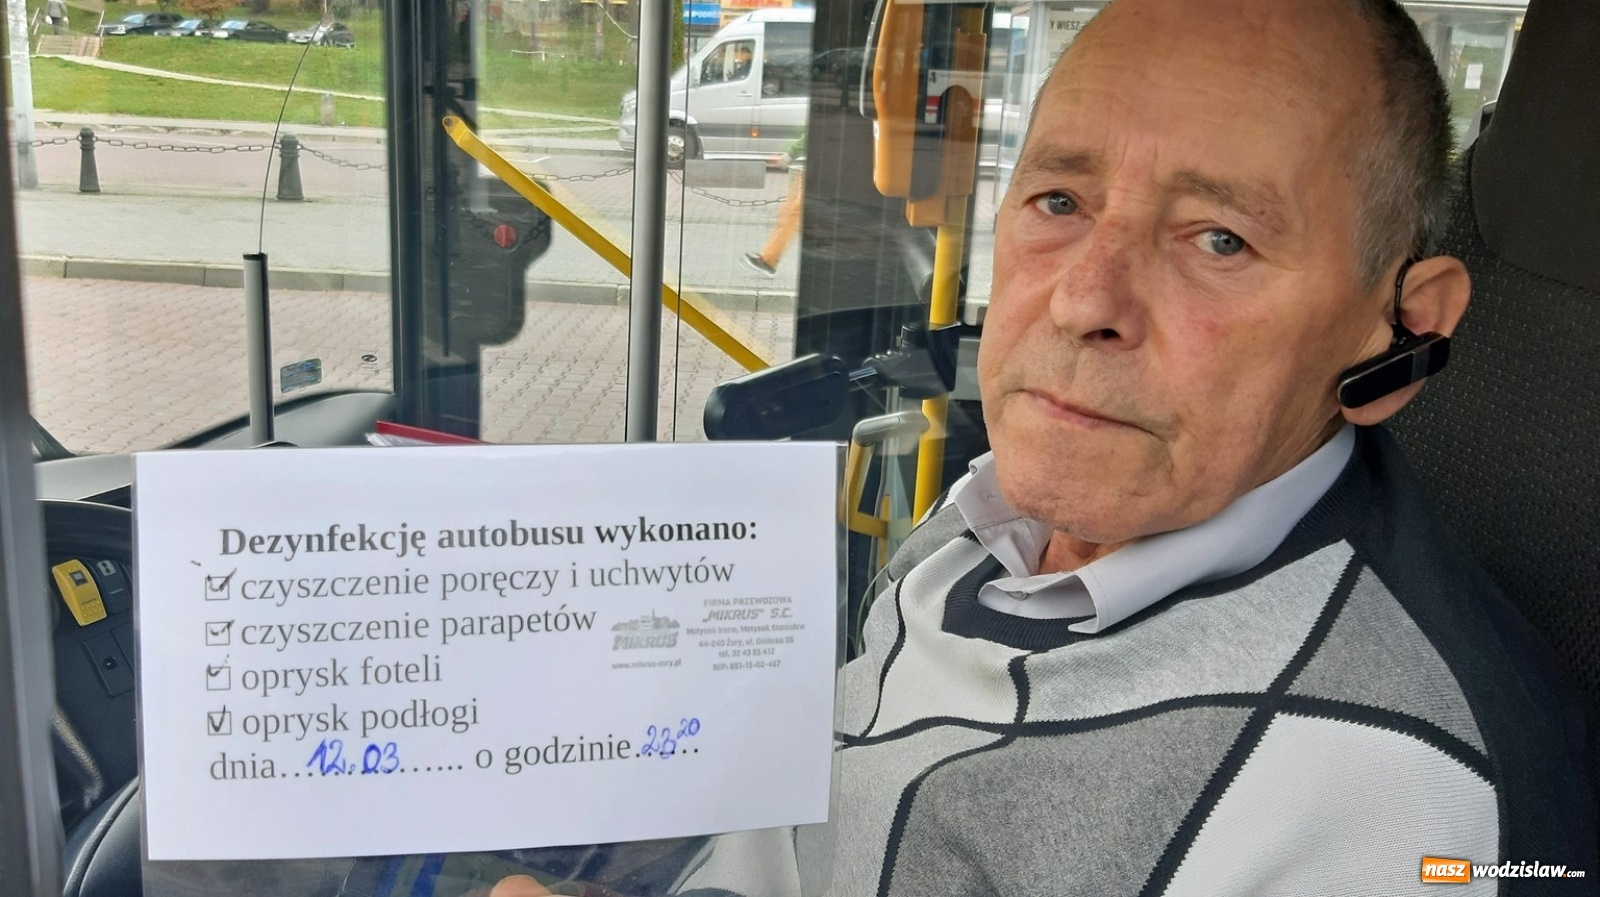 Y WIESZ
Dezynfekcję autobusu wykonano:
czyszczenie poręczy i uchwytów
czyszczenie parapetów
oprysk foteli
oprysk podłogi
dnia...12.03...... o godzinie.23 20..
MIKRUS
www.mikrus-zory.pl
FIRMA PRZEWOZOWA
„MIKRUS" S.C.
Matysek Irena, Matysek Stanisław
44-240 Żory, ul. Osińska 68
tel. 32 43 55 412
NIP: 651-15-02-467
nasz wodzislaw.com